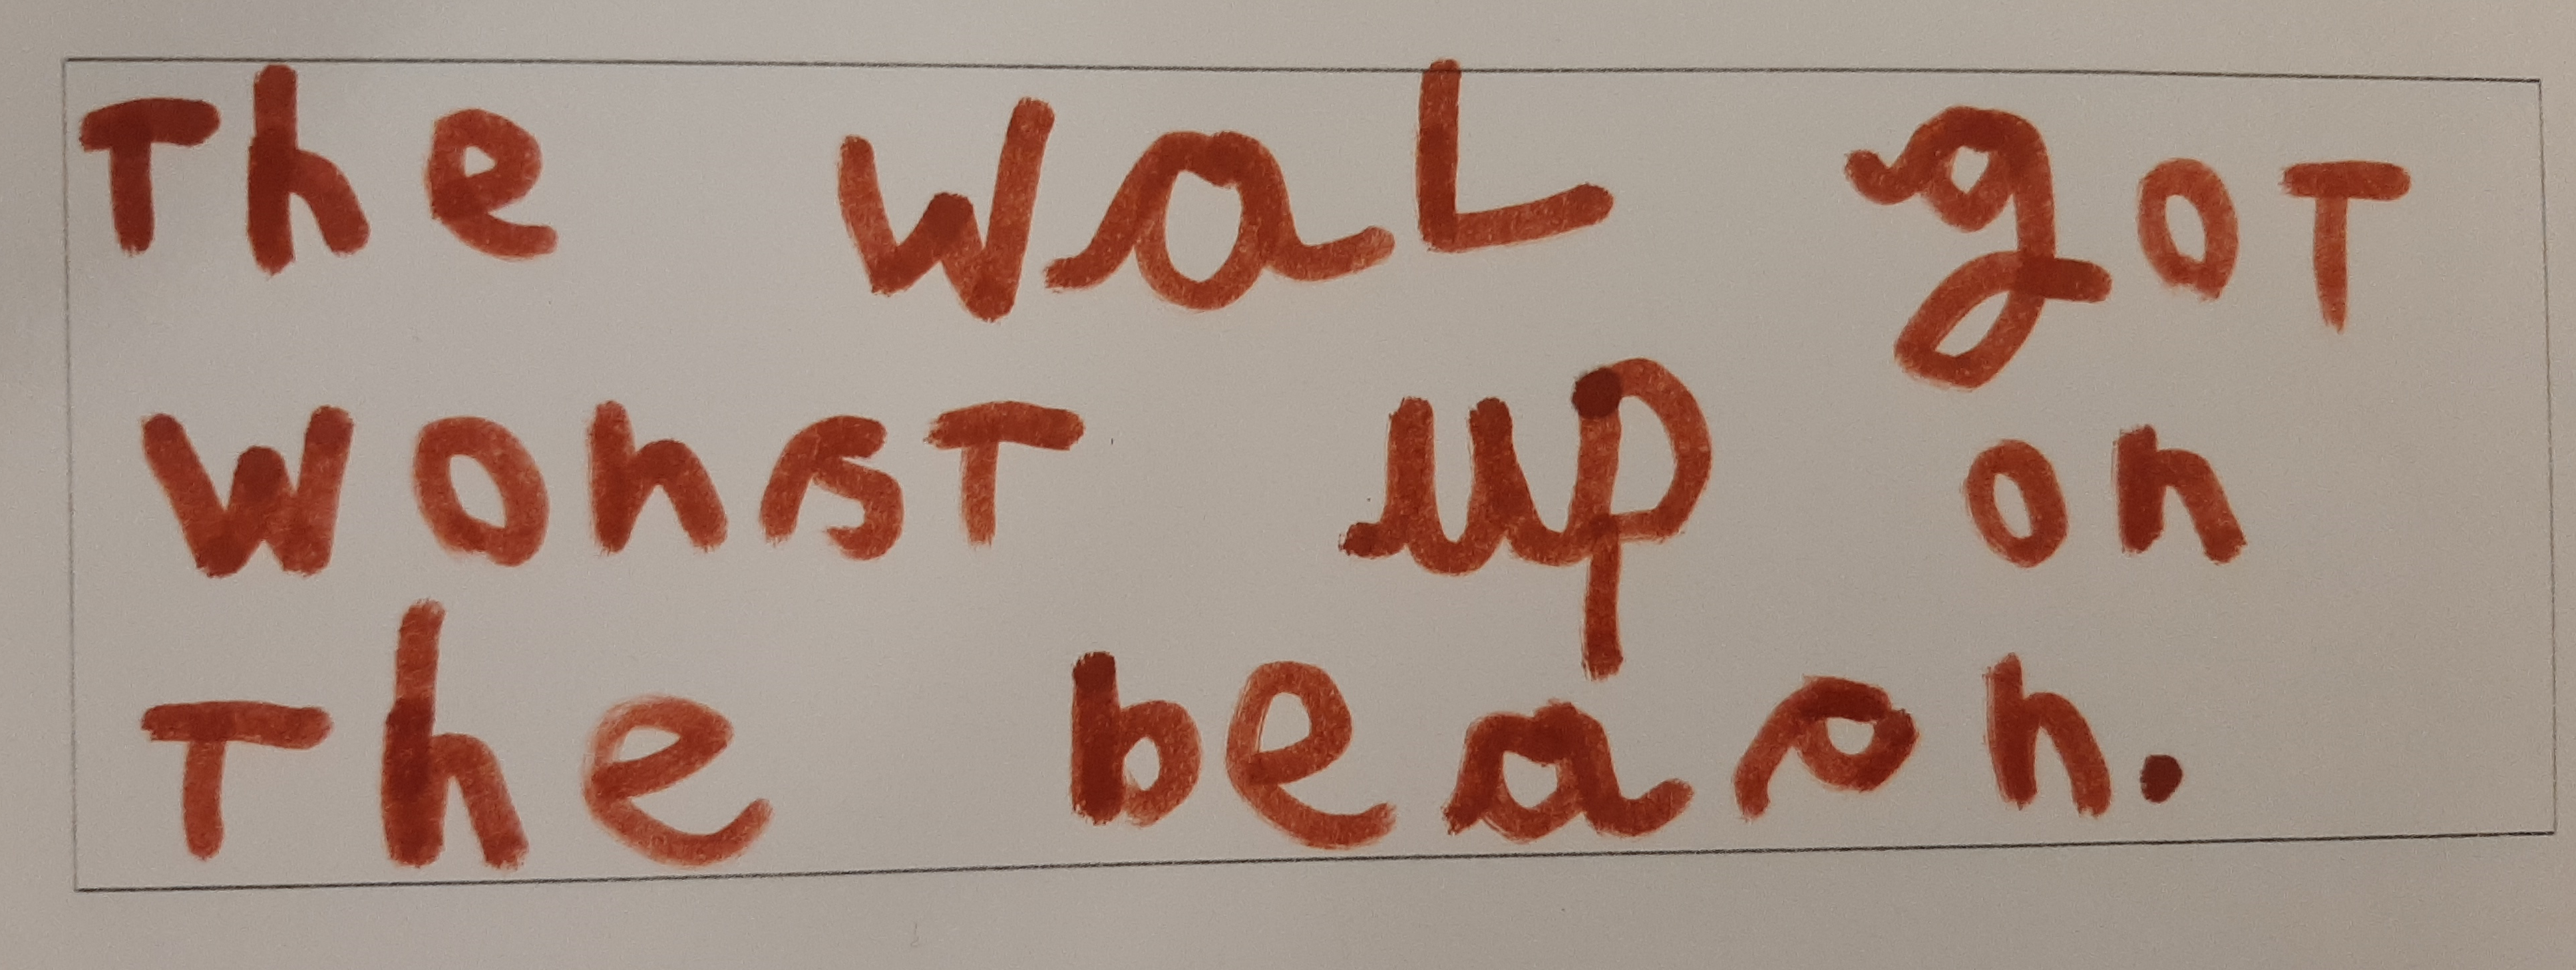 The wal got
wonst up on
the beaon.